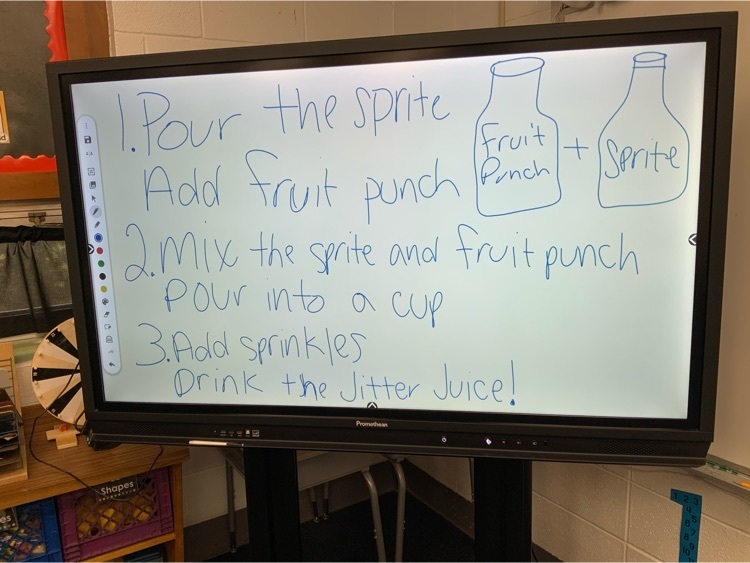 1. Pour the sprite
Add fruit punch
Fruit
Punch
+
Sprite
2. Mix the sprite and fruit punch
Pour into a cup
3. Add sprinkles
Drink the Jitter Juice!
Promethean
Shapes